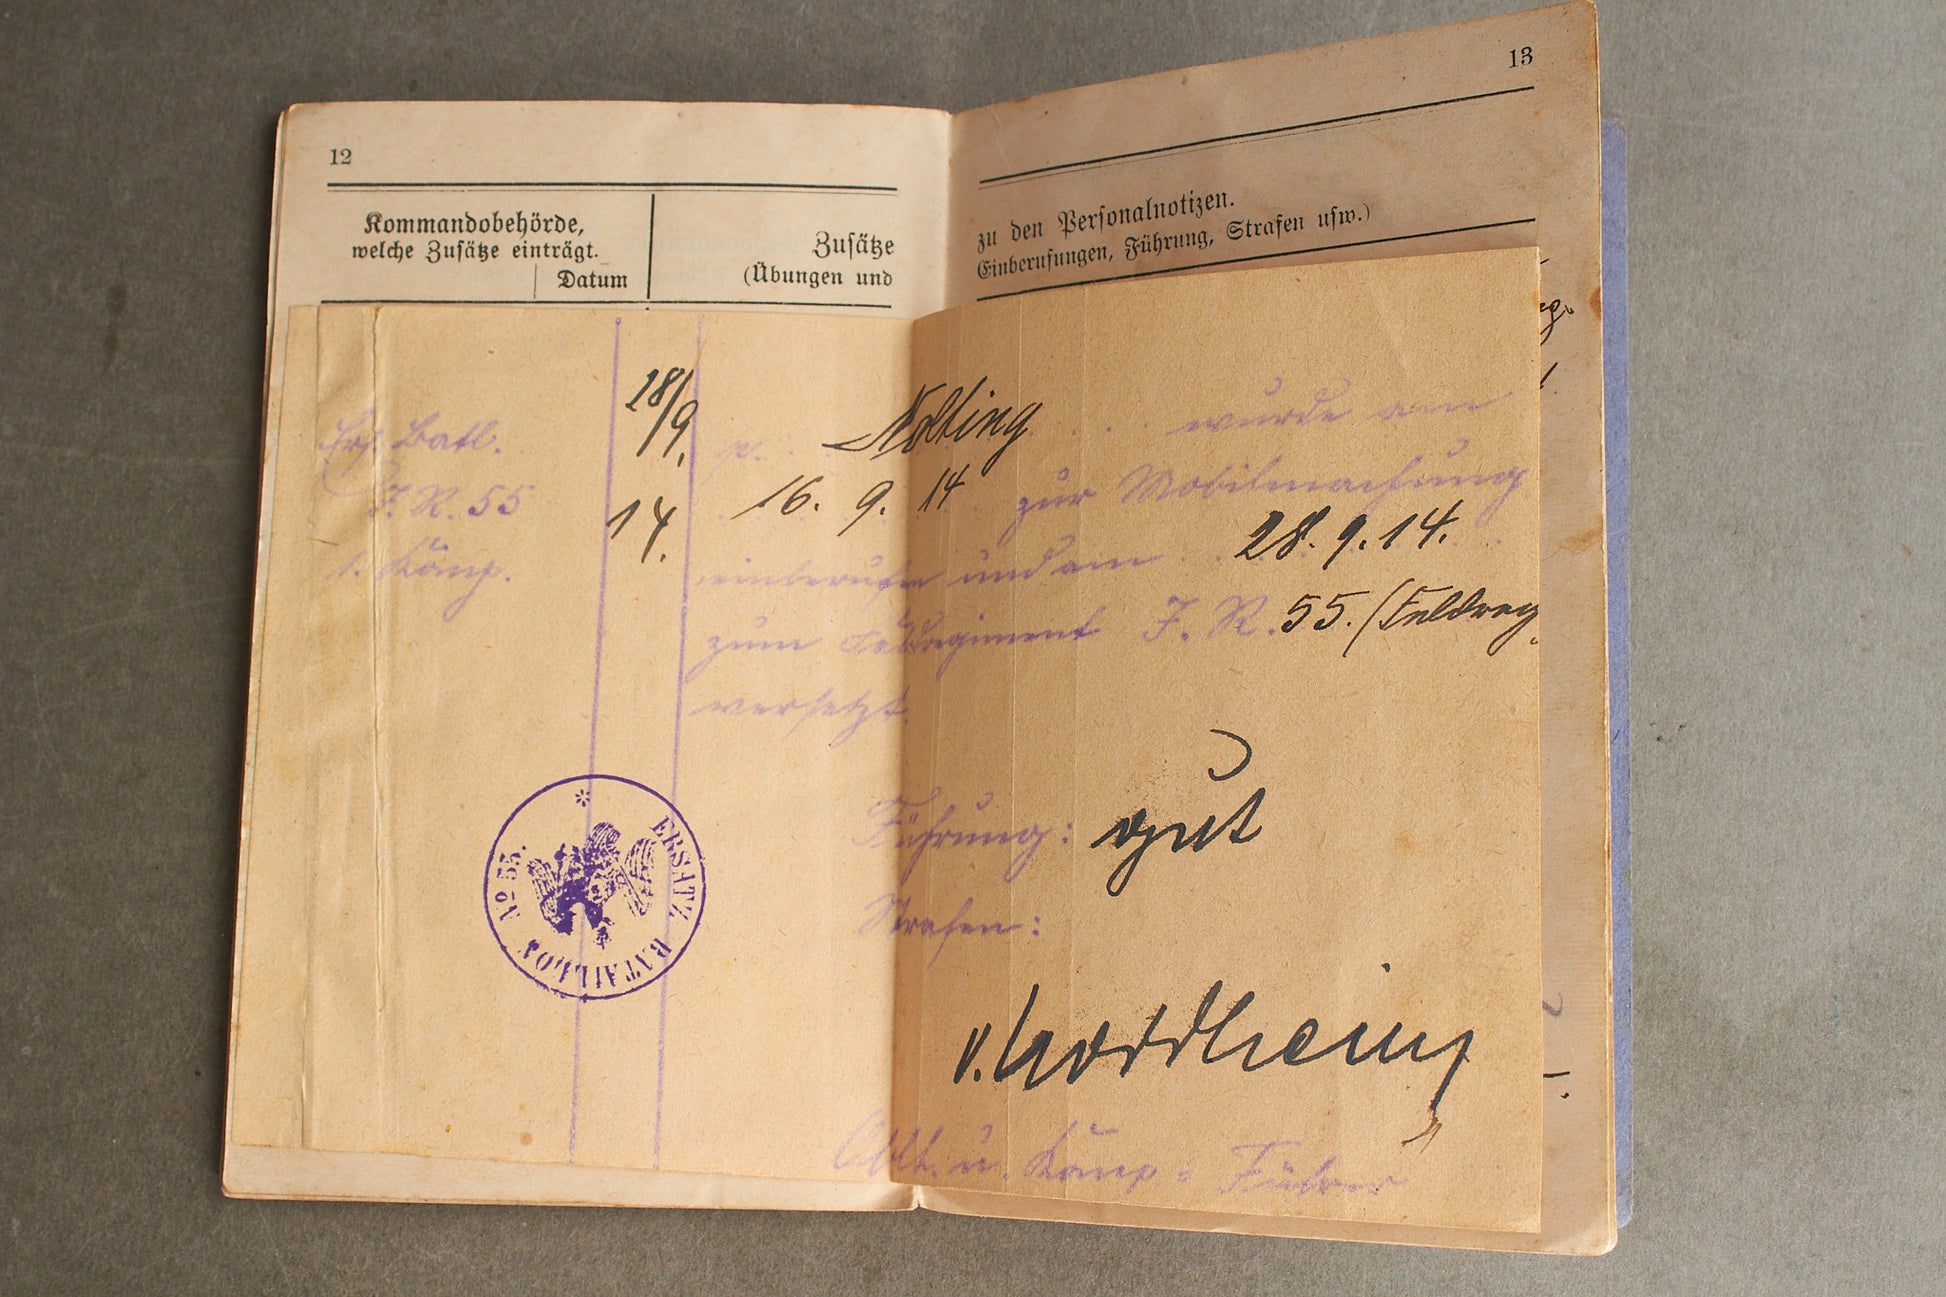 12
Kommandobehörde,
welche Zusätze einträgt.
Datum
Zusätze
(Übungen und
13
zu den Personalnotizen.
Einberufungen, Führung, Strafen usw.)
Ers. Batl.
J. R. 55
1. Komp.
28/9.
14.
p. Nolting wurde am
16. 9. 14 zur Mobilmachung
einberufen und am 28. 9. 14.
zum Feldregiment J. R. 55. (Feldreg
versetzt.
Führung: gut
Strafen:
v. Nordheim
u. Komp.-Führer
ERSATZ BATAILLON No 55.